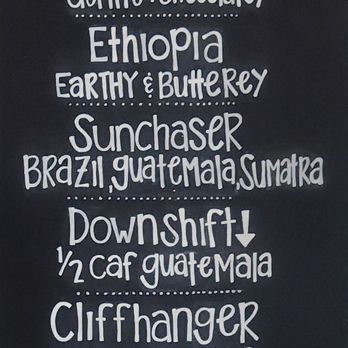 Ethiopia
Earthy & Butterey
Sunchaser
Brazil, guatemala, Sumatra
Downshift↓
½ caf guatemala
Cliffhanger